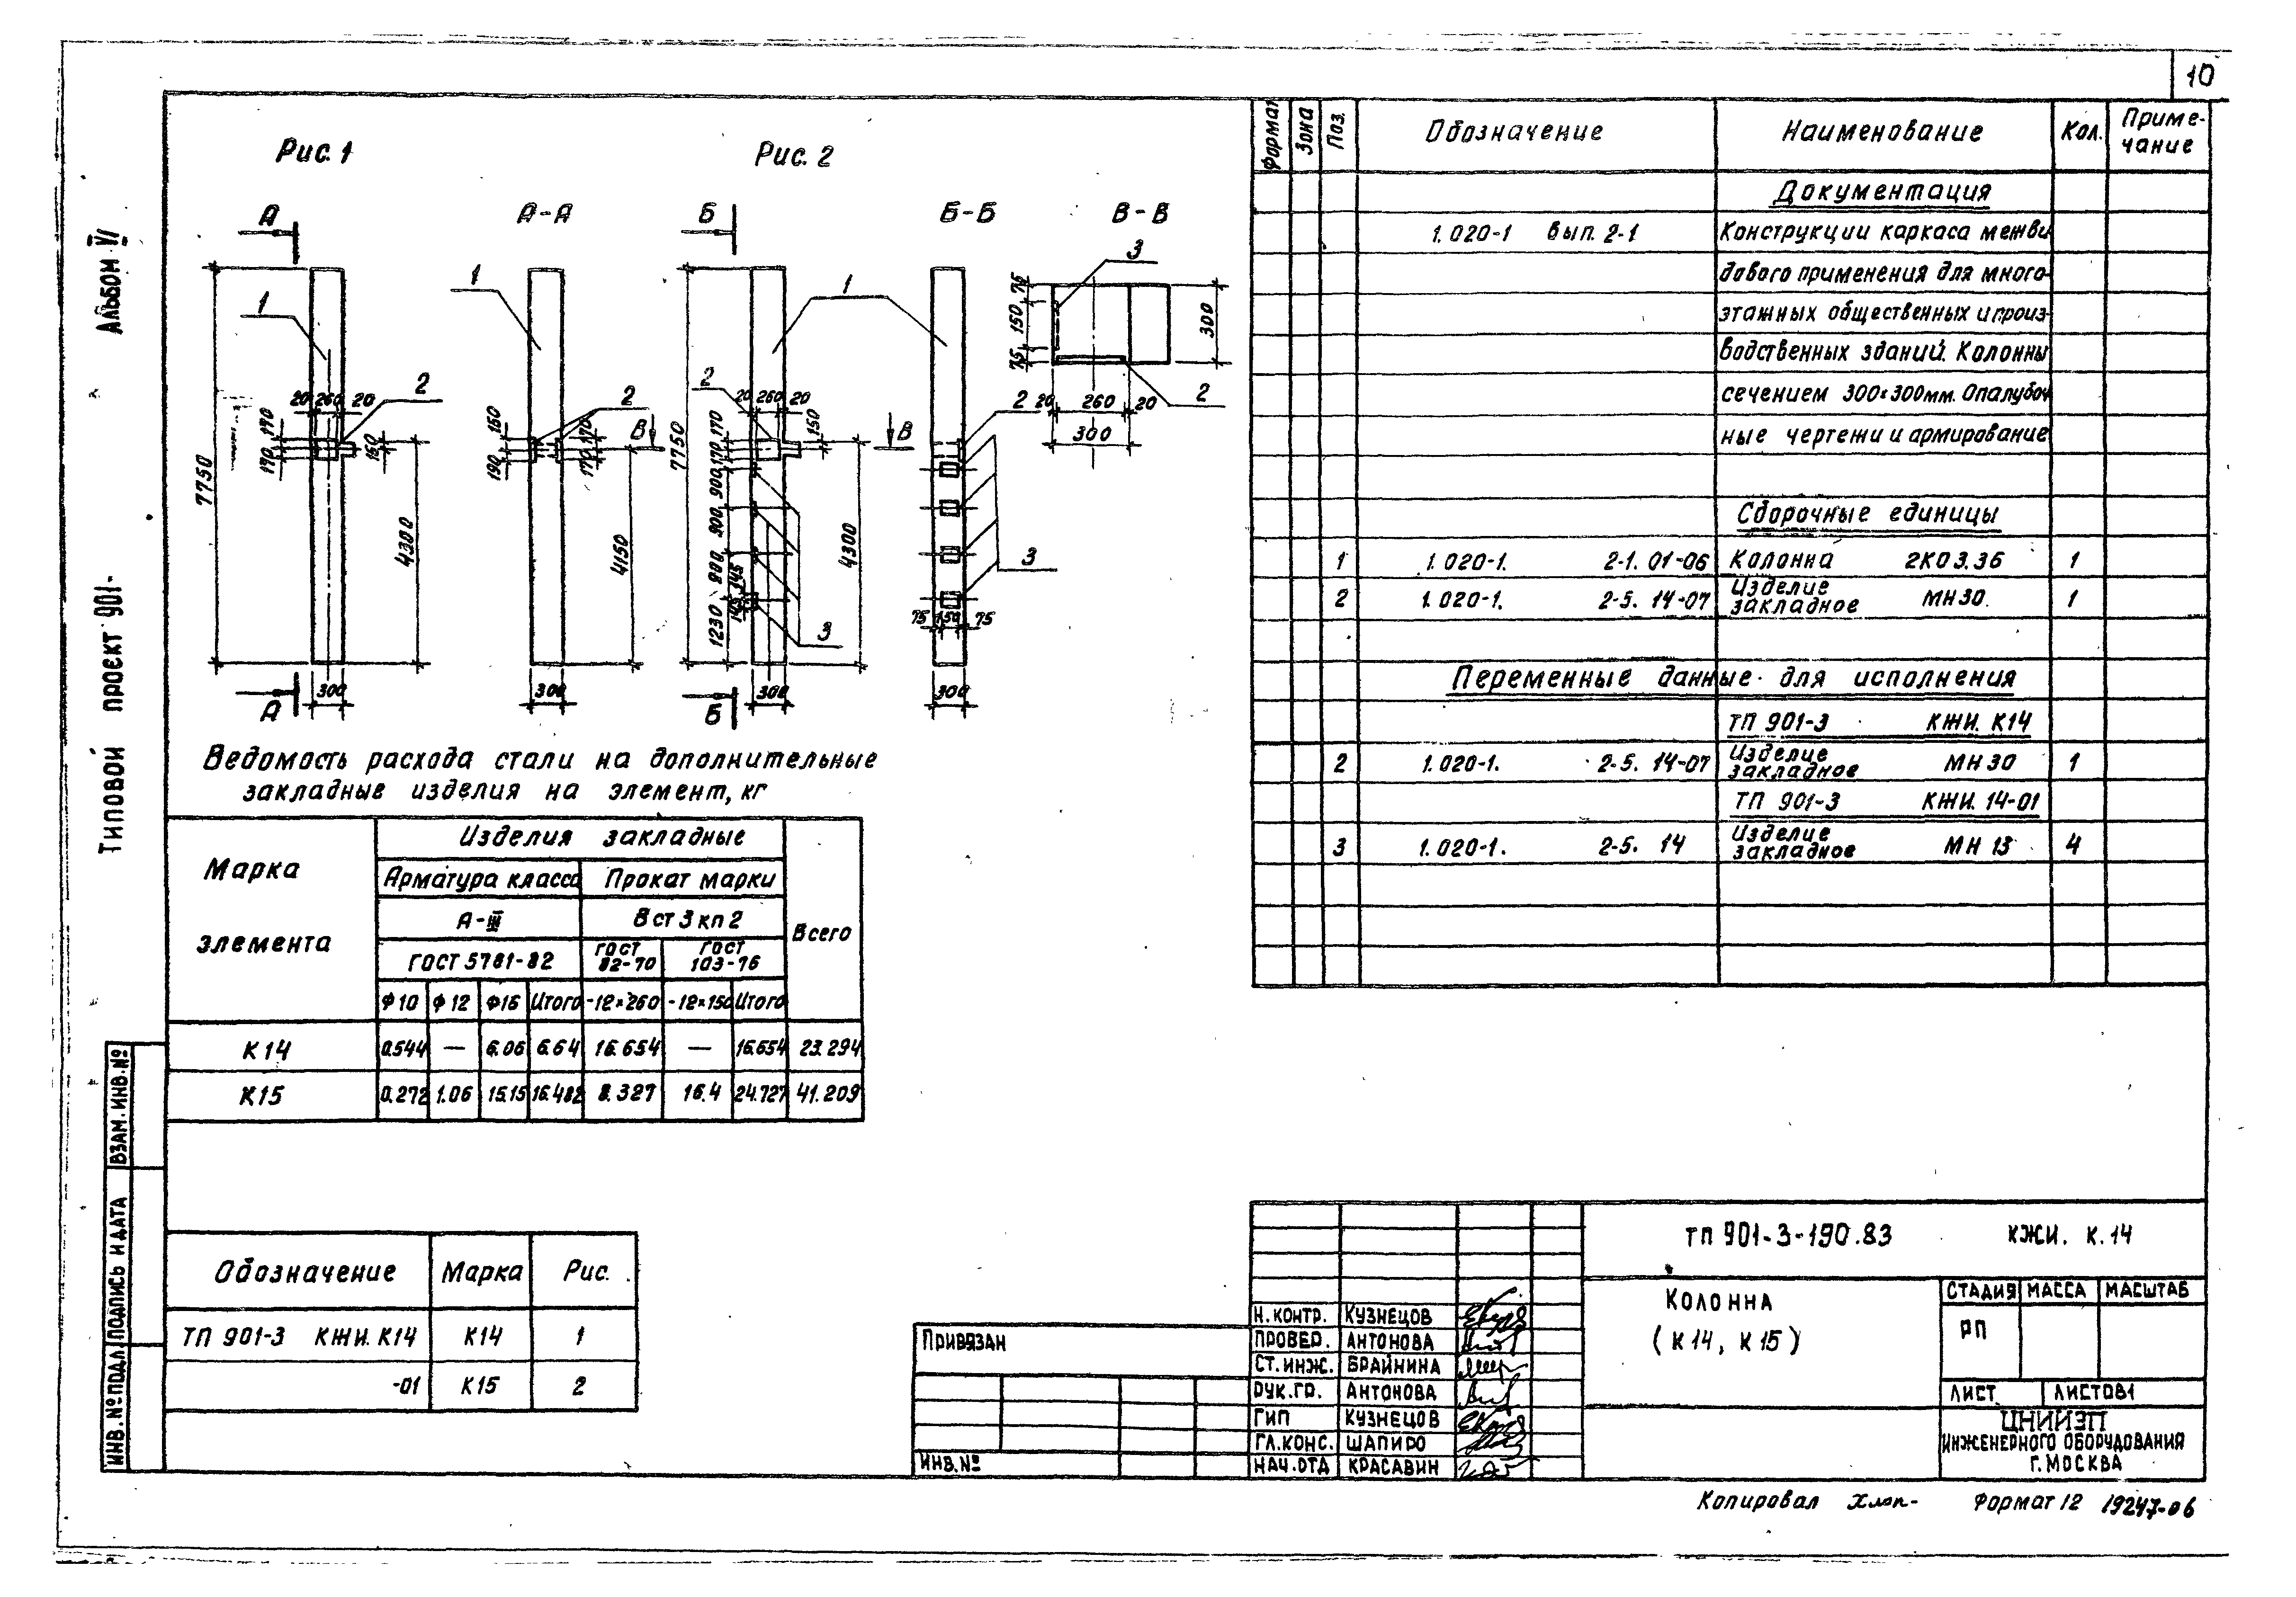 10
Альбом VI
Типовой проект 901-
Рис. 1
Рис. 2
А
А-А
Б
Б-Б
В-В
1
1
1
3
2
2
2
2
2
7750
20 260 20
170
170
150
4300
300
А
150
190
170
170
В
4150
300
7750
20 260 20
170
170
150
900
900
900
145
1230
4300
3
300
Б
В
3
75 150 75
300
75
150
75
300
20 260 20
300
Ведомость расхода стали на дополнительные
закладные изделия на элемент, кг
Марка элемента
Изделия закладные
Всего
Арматура класса
Прокат марки
А-III
Вст3кп2
ГОСТ 5781-82
ГОСТ 82-70
ГОСТ 103-76
Ф10 Ф12 Ф16 Итого -12×260 -12×150 Итого
К14 0.544 — 6.06 6.64 16.654 — 16.654 23.294
К15 0.272 1.06 15.15 16.482 8.327 16.4 24.727 41.209
Обозначение Марка Рис.
ТП 901-3 КЖИ.К14 К14 1
-01 К15 2
Формат Зона Поз. Обозначение Наименование Кол. Приме-
чание
Документация
1.020-1 вып. 2-1 Конструкции каркаса межви
дового применения для много-
этажных общественных и произ-
водственных зданий. Колонны
сечением 300×300мм. Опалубоч
ные чертежи и армирование
Сборочные единицы
1 1.020-1. 2-1. 01-06 Колонна 2КО3.36 1
2 1.020-1. 2-5. 14-07 Изделие закладное МН30 1
Переменные данные для исполнения
ТП 901-3 КЖИ. К14
2 1.020-1. 2-5. 14-07 Изделие закладное МН30 1
ТП 901-3 КЖИ. 14-01
3 1.020-1. 2-5. 14 Изделие закладное МН 13 4
ВЗАМ. ИНВ. №
ПОДПИСЬ И ДАТА
ИНВ. № ПОДЛ
Привязан
ИНВ. №
Н. КОНТР. КУЗНЕЦОВ
ПРОВЕР. АНТОНОВА
СТ. ИНЖ. БРАЙНИНА
РУК. ГР. АНТОНОВА
ГИП КУЗНЕЦОВ
ГЛ. КОНС. ШАПИРО
НАЧ. ОТД КРАСАВИН
ТП 901-3-190.83 КЖИ. К.14
КОЛОННА
(К14, К15)
СТАДИЯ МАССА МАСШТАБ
РП
ЛИСТ ЛИСТОВ 1
ЦНИИЭП
ИНЖЕНЕРНОГО ОБОРУДОВАНИЯ
Г. МОСКВА
Копировал
Формат 12
19247-06